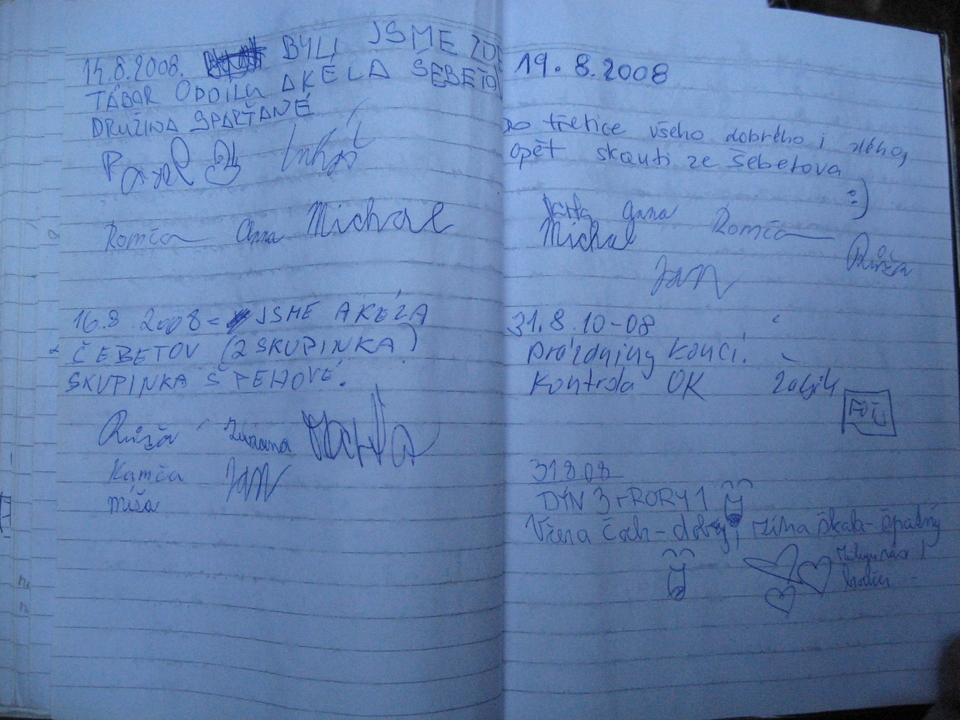 14.8.2008. BYLI JSME ZDE
TÁBOR ODDÍLU AKÉLA ŠEBETOV
DRUŽINA SPARŤANÉ
Pavel
Romča Anna Michal
16.8 2008 = JSME AKÉLA
ČEBETOV (2 SKUPINKA)
SKUPINKA ŠPEHOVÉ.
Růža Zuzana Marťa
Kamča Jan
Míša
19.8.2008
Do třetice všeho dobrého i zlého,
opět skauti ze Šebetova
:)
Marťa Anna Romča
Michal Růža
Jan
31.8.10-08
Prázdniny končí.
Kontrola OK
31808
DÝN 3 FRORY 1
Včera Čech - dobrý,